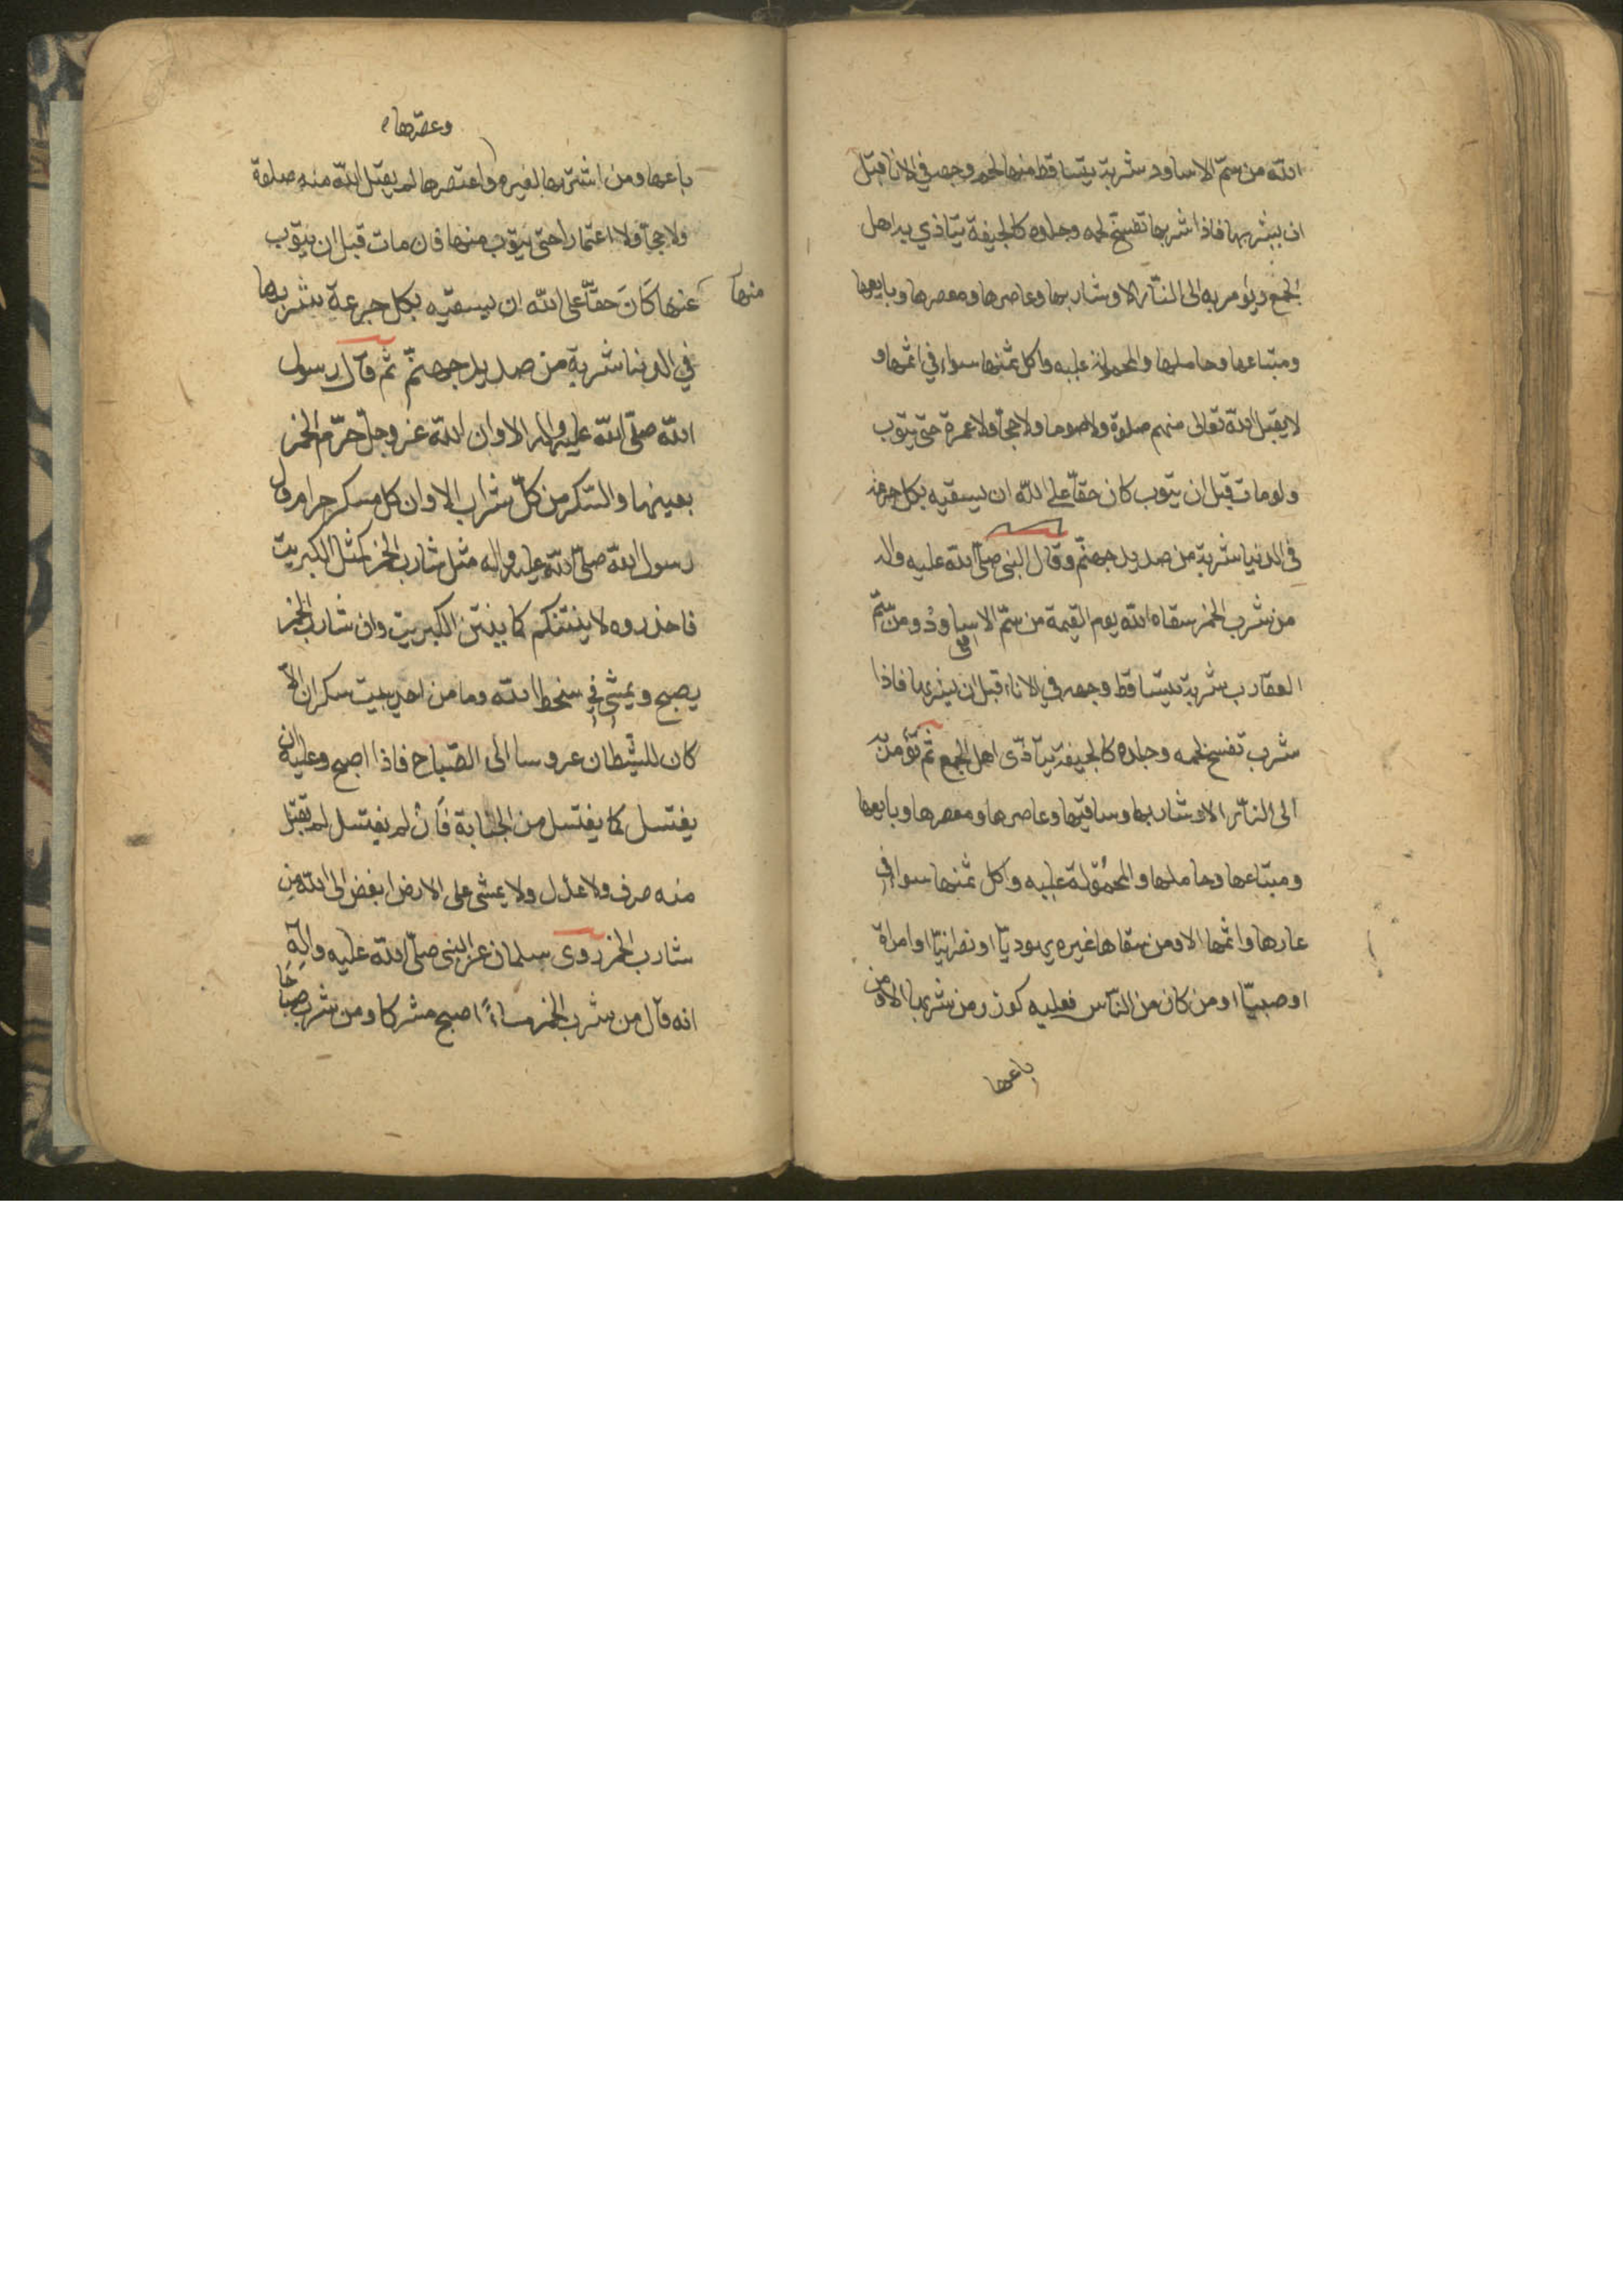 الله من سمّ الاساود شربة يتساقط منها لحم وجهه في الانا قبل
ان يشربها فاذا شربها تفسّخ لحمه وجلده كالجيفة يتاذي به اهل
الجمع ويؤمر به الى النّار الا وشاربها وعاصرها ومعصرها وبايعها
ومبتاعها وحاملها والمحمولة عليه واكل ثمنها سواء في اثمها و
لا يقبل الله تعالى منهم صلوة ولا صوما ولا حجّا ولا عمرة حتى يتوب
ولو مات قبل ان يتوب كان حقّا على الله ان يسقيه بكل جرعة
في الدنيا شربة من صديد جهنّم وقال النبي صلّى الله عليه واله
من شرب الخمر سقاه الله يوم القيمة من سمّ الاساود ومن سمّ
العقارب شربة يتساقط وجهه في الاناء قبل ان يشربها فاذا
شرب تفسخ لحمه وجلده كالجيفة يتاذّى اهل الجمع ثم يؤمر به
الى النّار الا وشاربها وساقيها وعاصرها ومعصرها وبايعها
ومبتاعها وحاملها والمحمولة عليه واكل ثمنها سواء في
عارها واثمها الا ومن سقاها غيره يهوديّا او نصرانيّا او امراة
او صبيّا او من كان من النّاس فعليه كوزر من شربها الا ومن
باعها
وعصرها
باعها ومن اشتريها لغيره واعتصرها لم يقبل الله منه صلوة
ولا حجّا ولا اعتمارا حتى يتوب منها فان مات قبل ان يتوب
منها
عنها كان حقّا على الله ان يسقيه بكل جرعة شربها
في الدنيا شربة من صديد جهنّم ثم قال رسول
الله صلّى الله عليه واله الا وان الله عز وجل حرّم الخمر
بعينها والسّكر من كلّ شراب الا وان كل مسكر حرام وقال
رسول الله صلّى الله عليه واله مثل شارب الخمر كمثل الكبريت
فاحذروه لا ينتنكم كما ينتن الكبريت وان شارب الخمر
يصبح ويمشى في سخط الله وما من احد يبيت سكران الّا
كان للشّيطان عروسا الى الصّباح فاذا اصبح وعليه ان
يغتسل كما يغتسل من الجنابة فان لم يغتسل لم يقبل
منه صرف ولا عدل ولا يمشى على الارض ابغض الى الله من
شارب الخمر روى سلمان عن النبي صلّى الله عليه واله
انه قال من شرب الخمر مساءً اصبح مشركا ومن شرب صباحا